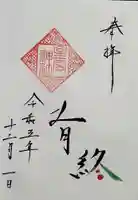 奉拝
有終
令和五年
十二月一日